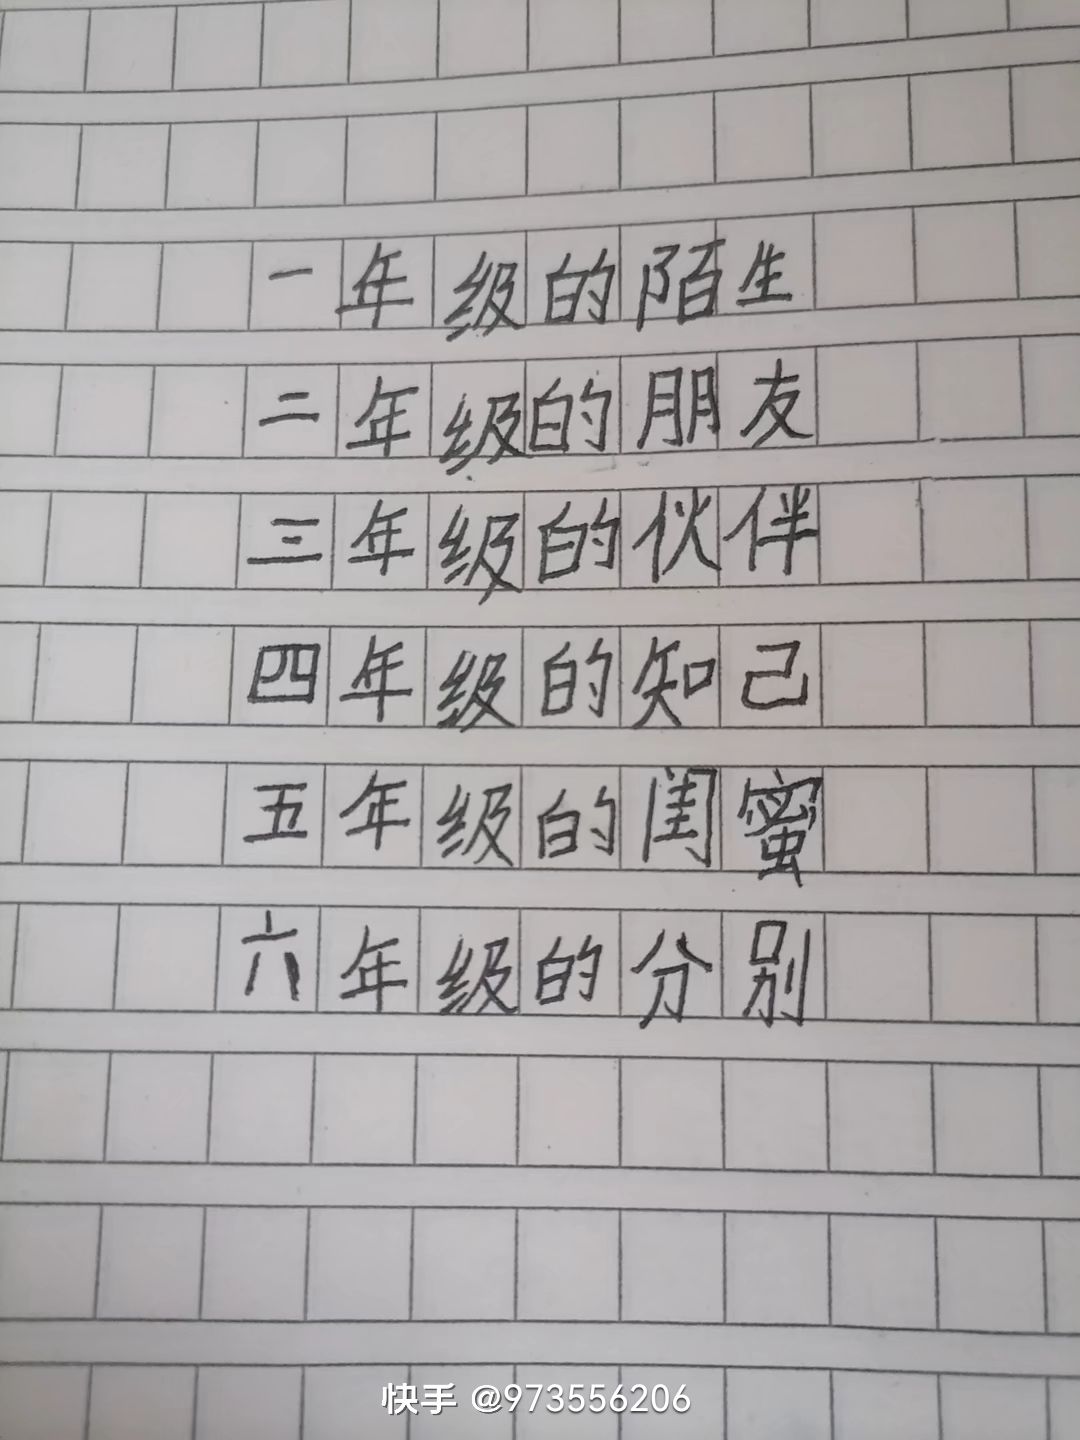 一年级的陌生
二年级的朋友
三年级的伙伴
四年级的知己
五年级的闺蜜
六年级的分别
快手 @973556206